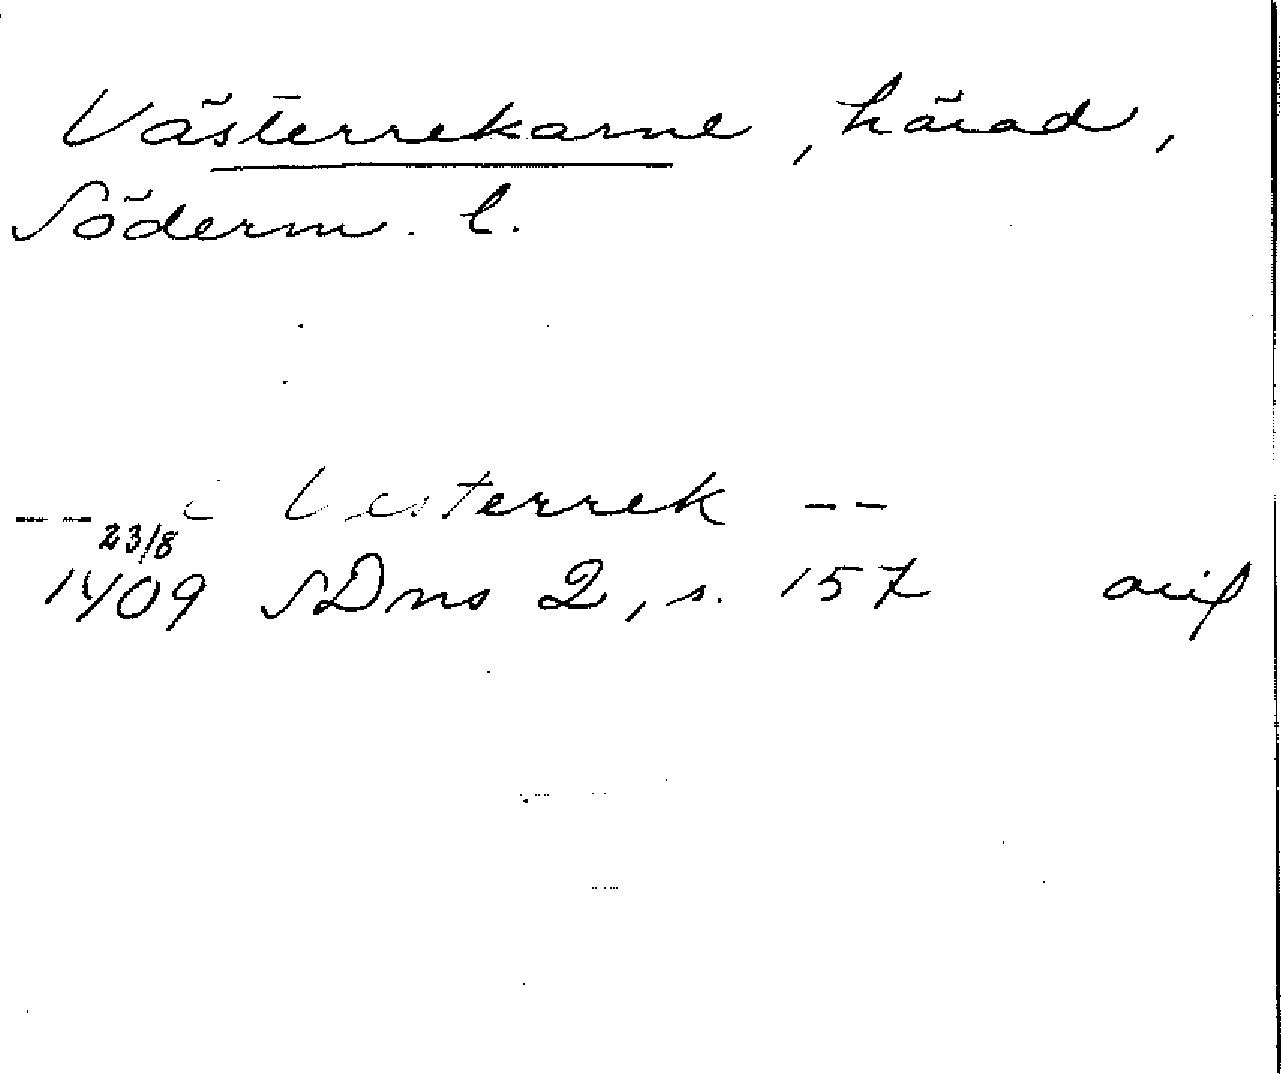 Västerrekarne, härad,
Söderm. l.
--- i Vesterrek --
23/8
1409 SDns 2, s. 157 orig